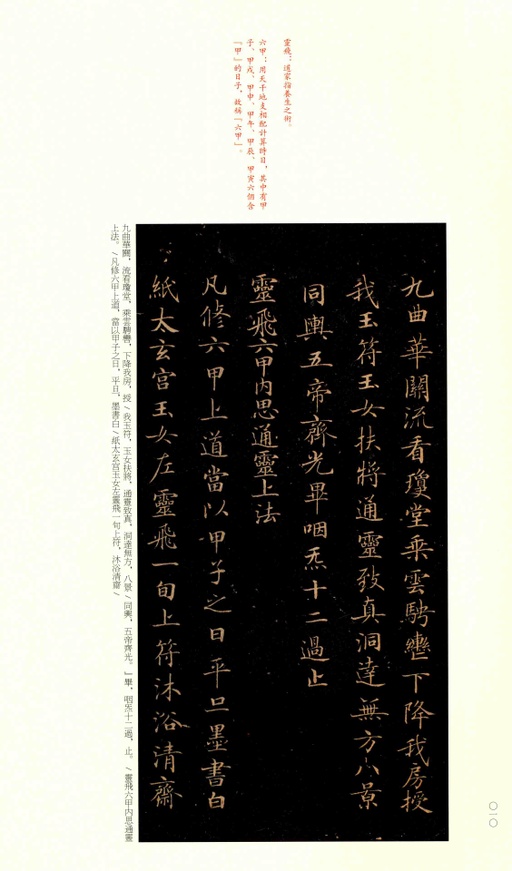 靈飛：道家指養生之術。
六甲：用天干地支相配計算時日，其中有甲
子、甲戌、甲申、甲午、甲辰、甲寅六個含
『甲』的日子，故稱『六甲』。
九曲華關流看瓊堂乘雲騁轡下降我房授
我玉符玉女扶將通靈致真洞達無方八景
同輿五帝齊光畢咽炁十二過止
靈飛六甲內思通靈上法
凡修六甲上道當以甲子之日平旦墨書白
紙太玄宮玉女左靈飛一旬上符沐浴清齋
九曲華關，流看瓊堂，乘雲騁轡，下降我房，授／我玉符，玉女扶將，通靈致真，洞達無方，八景／同輿，五帝齊光。』畢，咽炁十二過，止。／靈飛六甲內思通靈
上法。／凡修六甲上道，當以甲子之日，平旦，墨書白／紙太玄宮玉女左靈飛一旬上符，沐浴清齋／
〇一〇